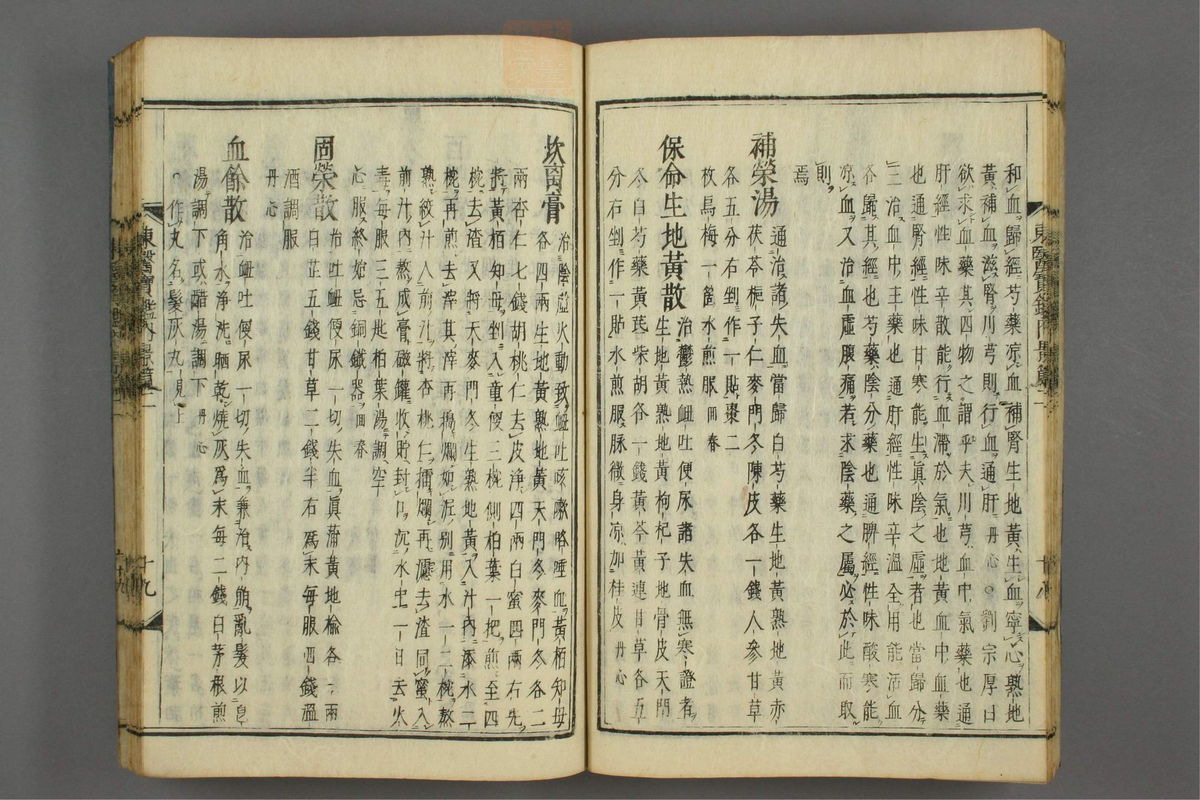 和血歸經芍藥凉血補腎生地黃生血寧心熟地
黃補血滋腎川芎則行血通肝丹心○劉宗厚曰
欲求血藥其四物之謂乎夫川芎血中氣藥也通
肝經性味辛散能行血滯於氣也地黃血中血藥
也通腎經性味甘寒能生眞陰之虛者也當歸分
三治血中主藥也通肝經性味辛溫全用能活血
各歸其經也芍藥陰分藥也通脾經性味酸寒能
凉血又治血虛腹痛若求陰藥之屬必於此而取
則
焉
補榮湯 通治諸失血當歸白芍藥生地黃熟地黃赤
茯苓梔子仁麥門冬陳皮各一錢人參甘草
各五分右剉作一貼棗二
枚烏梅一箇水煎服回春
保命生地黃散 治鬱熱衄吐便尿諸失血無寒證者
生地黃熟地黃枸杞子地骨皮天門
冬白芍藥黃芪柴胡各一錢黃芩黃連甘草各五
分右剉作一貼水煎服脉微身凉加桂皮丹心
坎离膏 治陰虛火動致衄吐咳嗽咯唾血黃栢知母
各四兩生地黃熟地黃天門冬麥門冬各二
兩杏仁七錢胡桃仁去皮淨四兩白蜜四兩右先
將黃栢知母剉入童便三椀側栢葉一把煎至四
椀去渣又將天麥門冬生熟地黃入汁內添水二
椀再煎去滓其滓再搗爛如泥別用水一二椀熬
熟絞汁入前汁將杏桃仁擂爛再濾去渣同蜜入
前汁內熬成膏磁罐收貯封口沉水中一日去火
毒每服三五匙栢葉湯調空
心服終始忌銅鐵器回春
固榮散 治吐衄便尿一切失血眞蒲黃地楡各一兩
白芷五錢甘草二錢半右爲末每服四錢溫
酒調服
丹心
血餘散 治衄吐便尿一切失血兼治內崩亂髮以皂
角水淨洗晒乾燒灰爲末每二錢白茅根煎
湯調下或醋湯調下丹心
○作丸名髮灰丸見上
東醫寶鑑內景篇二
十九